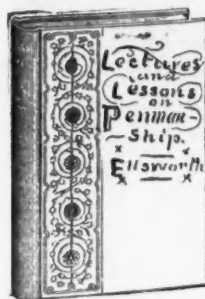 Lectures
and
Lessons
on
Penman-
ship.
Ellsworth